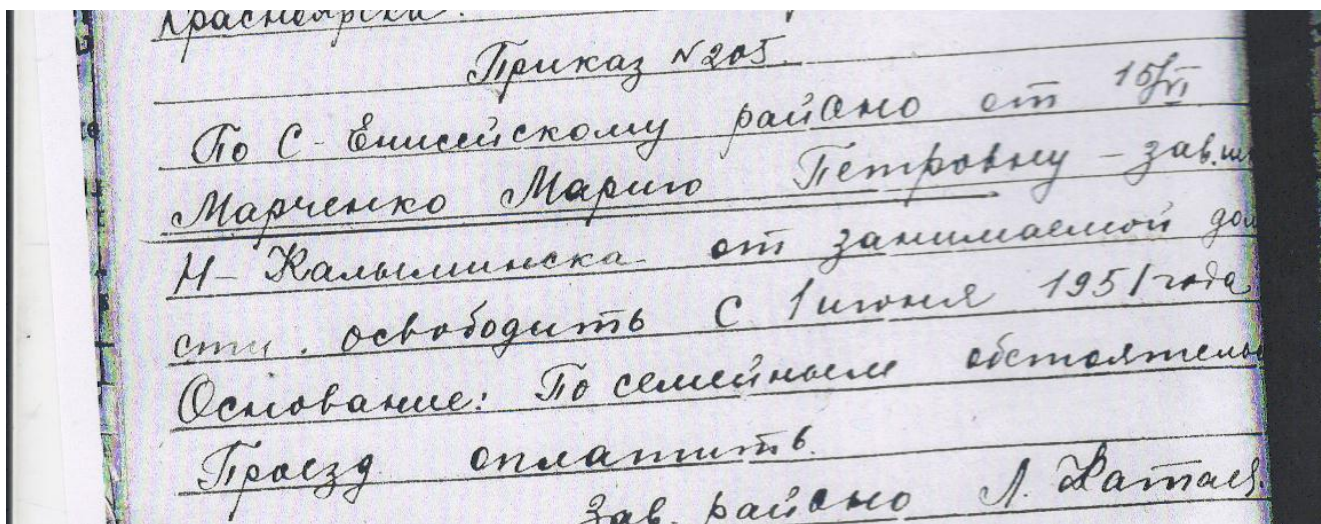 Красноярска.
Приказ N 205.
По С-Енисейскому районо от 15/VI
Марченко Марию Петровну - зав. шк
Н-Калыминска от занимаемой дол
сти. освободить с 1 июня 1951 года
Основание: По семейным обстоятельс
Проезд оплатить.
Зав. районо Л.